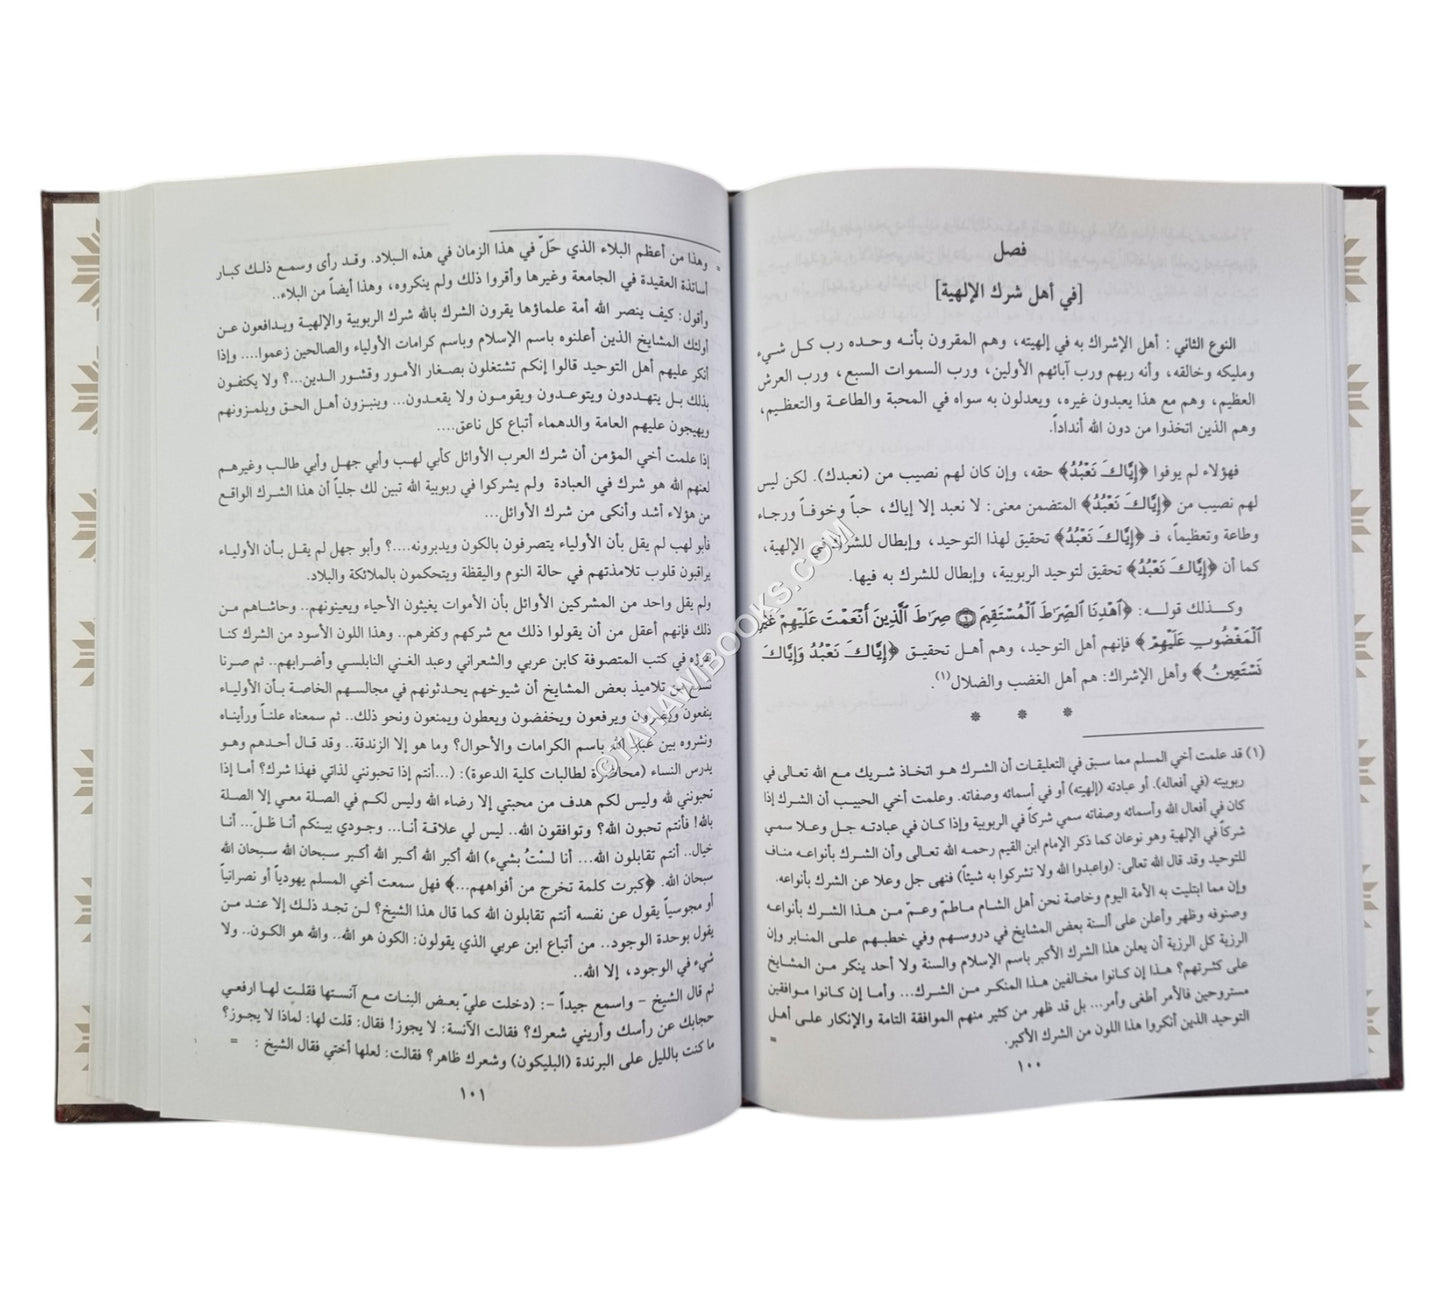 فصل
[في أهل شرك الإلهية]
النوع الثاني : أهل الإشراك به في إلهيته، وهم المقرون بأنه وحده رب كل شيء
ومليكه وخالقه، وأنه ربهم ورب آبائهم الأولين، ورب السموات السبع، ورب العرش
العظيم، وهم مع هذا يعبدون غيره، ويعدلون به سواه في المحبة والطاعة والتعظيم،
وهم الذين اتخذوا من دون الله أنداداً.
فهؤلاء لم يوفوا ﴿إِيَّاكَ نَعْبُدُ﴾ حقه، وإن كان لهم نصيب من (نعبدك). لكن ليس
لهم نصيب من ﴿إِيَّاكَ نَعْبُدُ﴾ المتضمن معنى: لا نعبد إلا إياك، حباً وخوفاً ورجاء
وطاعة وتعظيماً، فـ ﴿إِيَّاكَ نَعْبُدُ﴾ تحقيق لهذا التوحيد، وإبطال للشرك في الإلهية،
كما أن ﴿إِيَّاكَ نَعْبُدُ﴾ تحقيق لتوحيد الربوبية، وإبطال للشرك به فيها.
وكذلك قوله: ﴿اَهْدِنَا اَلصِّرَاطَ اَلْمُسْتَقِيمَ ٦ صِرَاطَ اَلَّذِينَ أَنْعَمْتَ عَلَيْهِمْ غَيْرِ
اِلْمَغْضُوبِ عَلَيْهِمْ﴾ فإنهم أهل التوحيد، وهم أهل تحقيق ﴿إِيَّاكَ نَعْبُدُ وَإِيَّاكَ
نَسْتَعِينُ﴾ وأهل الإشراك: هم أهل الغضب والضلال(١).
* * *
(١) قد علمت أخي المسلم مما سبق في التعليقات أن الشرك هو اتخاذ شريك مع الله تعالى في
ربوبيته (في أفعاله). أو عبادته (إلهيته) أو في أسمائه وصفاته. وعلمت أخي الحبيب أن الشرك إذا
كان في أفعال الله وأسمائه وصفاته سمي شركاً في الربوبية وإذا كان في عبادته جل وعلا سمي
شركاً في الإلهية وهو نوعان كما ذكر الإمام ابن القيم رحمه الله تعالى وأن الشرك بأنواعه مناف
للتوحيد وقد قال الله تعالى: (واعبدوا الله ولا تشركوا به شيئاً) فنهى جل وعلا عن الشرك بأنواعه.
وإن مما ابتليت به الأمة اليوم وخاصة نحن أهل الشام ماطمّ وعمّ من هذا الشرك بأنواعه
وصنوفه وظهر وأعلن على ألسنة بعض المشايخ في دروسهم وفي خطبهم على المنابر وإن
الرزية كل الرزية أن يعلن هذا الشرك الأكبر باسم الإسلام والسنة ولا أحد ينكر من المشايخ
على كثرتهم؟ هذا إن كانوا مخالفين هذا المنكر من الشرك... وأما إن كانوا موافقين
مستروحين فالأمر أطغى وأمر... بل قد ظهر من كثير منهم الموافقة التامة والإنكار على أهل
التوحيد الذين أنكروا هذا اللون من الشرك الأكبر. =
١٠٠
= وهذا من أعظم البلاء الذي حَلّ في هذا الزمان في هذه البلاد. وقد رأى وسمع ذلك كبار
أساتذة العقيدة في الجامعة وغيرها وأقروا ذلك ولم ينكروه، وهذا أيضاً من البلاء..
وأقول: كيف ينصر الله أمة علماؤها يقرون الشرك بالله شرك الربوبية والإلهية ويدافعون عن
أولئك المشايخ الذين أعلنوه باسم الإسلام وباسم كرامات الأولياء والصالحين زعموا.... وإذا
أنكر عليهم أهل التوحيد قالوا إنكم تشتغلون بصغار الأمور وقشور الدين...؟ ولا يكتفون
بذلك بل يتهددون ويتوعدون ويقومون ولا يقعدون... وينبزون أهل الحق ويلمزونهم
ويهيجون عليهم العامة والدهماء أتباع كل ناعق....
إذا علمت أخي المؤمن أن شرك العرب الأوائل كأبي لهب وأبي جهل وأبي طالب وغيرهم
لعنهم الله هو شرك في العبادة ولم يشركوا في ربوبية الله تبين لك جلياً أن هذا الشرك الواقع
من هؤلاء أشد وأنكى من شرك الأوائل...
فأبو لهب لم يقل بأن الأولياء يتصرفون بالكون ويدبرونه....؟ وأبو جهل لم يقل بأن الأولياء
يراقبون قلوب تلامذتهم في حالة النوم واليقظة ويتحكمون بالملائكة والبلاد.
ولم يقل واحد من المشركين الأوائل بأن الأموات يغيثون الأحياء ويعينونهم.. وحاشاهم من
ذلك فإنهم أعقل من أن يقولوا ذلك مع شركهم وكفرهم.. وهذا اللون الأسود من الشرك كنا
نقرؤه في كتب المتصوفة كابن عربي والشعراني وعبد الغني النابلسي وأضرابهم.. ثم صرنا
نسمع من تلاميذ بعض المشايخ أن شيوخهم يحدثونهم في مجالسهم الخاصة بأن الأولياء
ينفعون ويضرون ويرفعون ويخفضون ويعطون ويمنعون ونحو ذلك.. ثم سمعناه علناً ورأيناه
ونشروه بين عباد الله باسم الكرامات والأحوال؟ وما هو إلا الزندقة.. وقد قال أحدهم وهو
يدرس النساء (محاضرة لطالبات كلية الدعوة): (...أنتم إذا تحبونني لذاتي فهذا شرك؟ أما إذا
تحبونني لله وليس لكم هدف من محبتي إلا رضاء الله وليس لكم في الصلة معي إلا الصلة
بالله! فأنتم تحبون الله؟ وتوافقون الله.. ليس لي علاقة أنا... وجودي بينكم أنا ظلّ... أنا
خيال.. أنتم تقابلون الله... أنا لسْتُ بشيء) الله أكبر الله أكبر الله أكبر سبحان الله سبحان الله
سبحان الله. ﴿كبرت كلمة تخرج من أفواههم...﴾ فهل سمعت أخي المسلم يهودياً أو نصرانياً
أو مجوسياً يقول عن نفسه أنتم تقابلون الله كما قال هذا الشيخ؟ لن تجد ذلك إلا عند من
يقول بوحدة الوجود.. من أتباع ابن عربي الذي يقولون: الكون هو الله.. والله هو الكون.. ولا
شيء في الوجود، إلا الله..
ثم قال الشيخ - واسمع جيداً -: (دخلت عليّ بعض البنات مع آنستها فقلت لها ارفعي
حجابك عن رأسك وأريني شعرك؟ فقالت الآنسة: لا يجوز! فقال: قلت لها: لماذا لا يجوز؟
ما كنت بالليل على البرندة (البليكون) وشعرك ظاهر؟ فقالت: لعلها أختي فقال الشيخ : =
١٠١
©TAHAWIBOOKS.COM